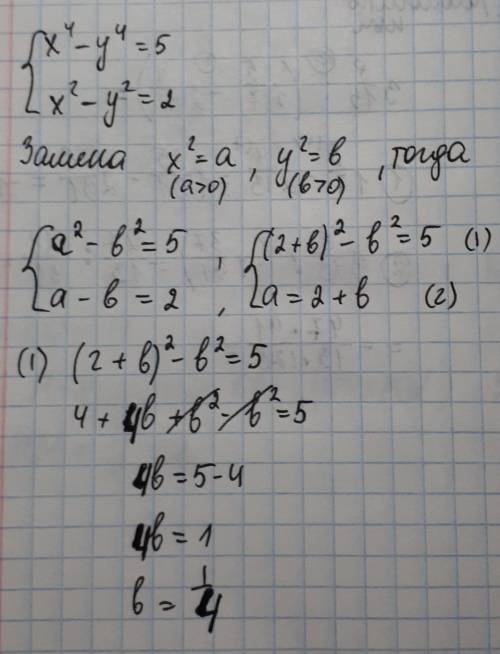 x⁴ - y⁴ = 5
x² - y² = 2
Замена x² = a, y² = b, тогда
(a>0) (b>0)
a² - b² = 5, (2+b)² - b² = 5 (1)
a - b = 2, a = 2 + b (2)
(1) (2 + b)² - b² = 5
4 + 4b + b² - b² = 5
4b = 5 - 4
4b = 1
b = 1/4